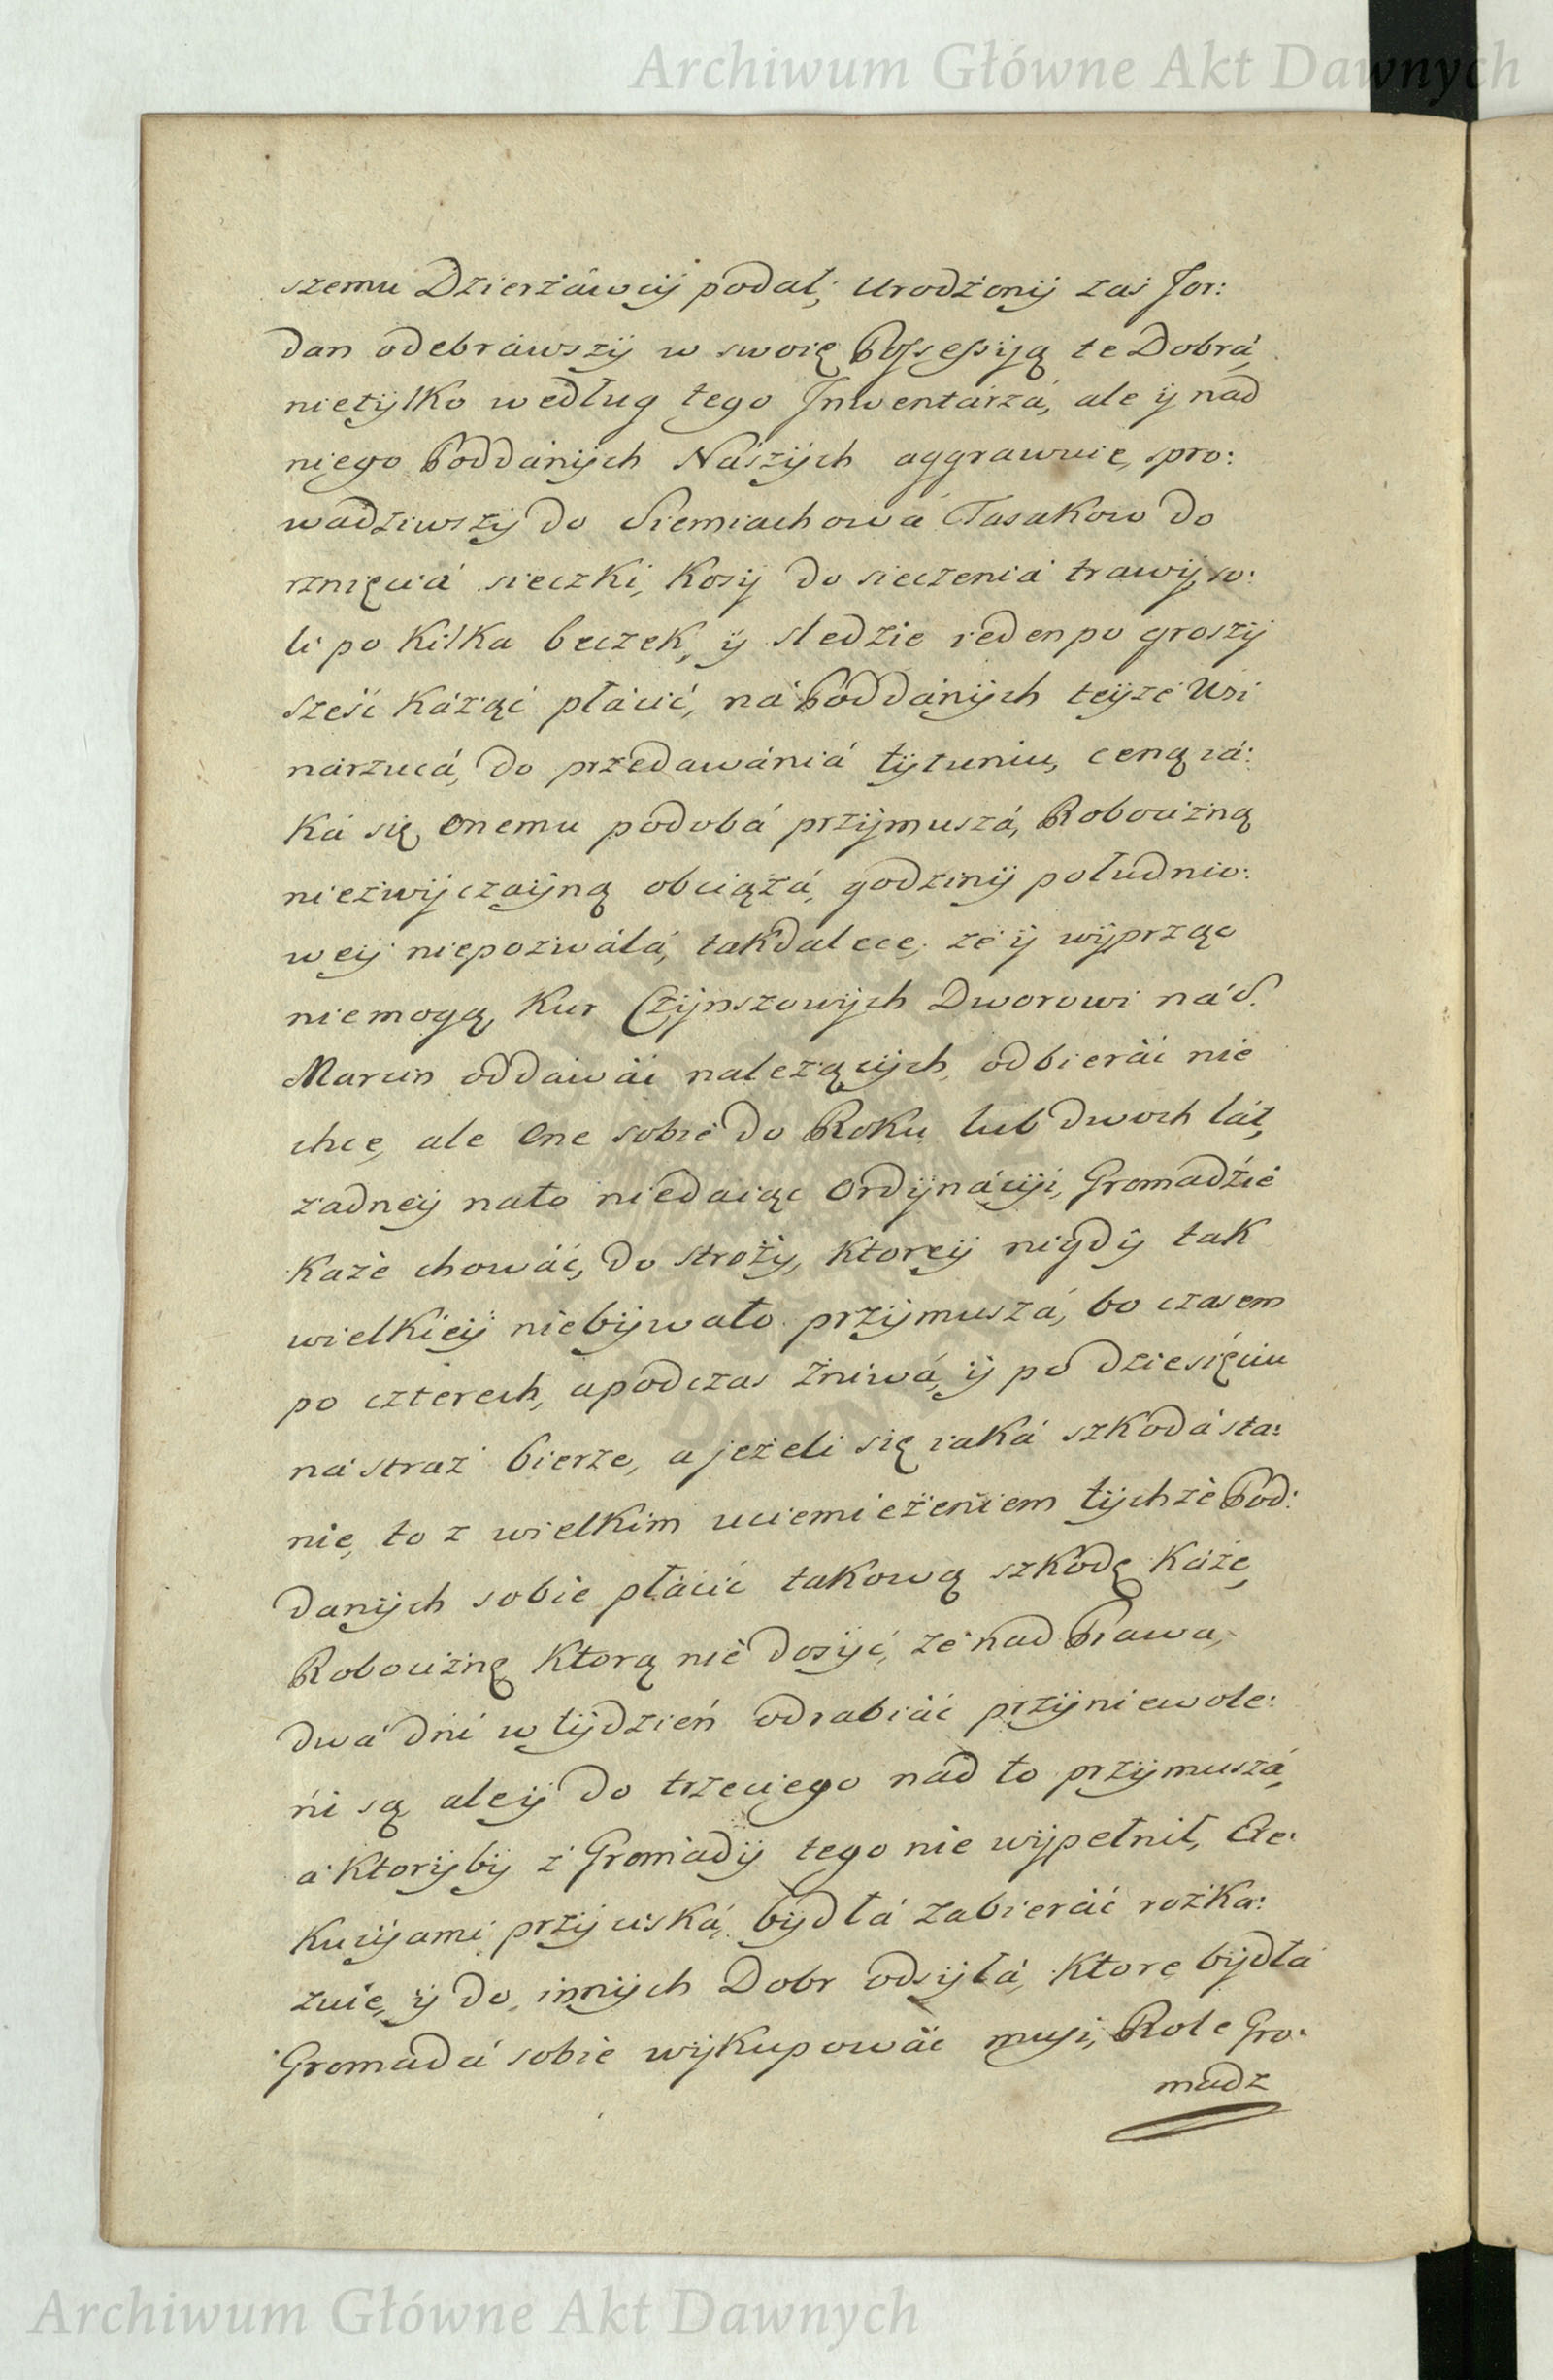 Archiwum Główne Akt Dawnych
szemu Dzierżáwcÿ podał; Urodżonÿ zaś Jor:
dan odebráwszÿ w swoię Possessiją te Dobrá,
nietÿlko według tego Jnwentárzá, ale ÿ nad
niego Poddánÿch Nászÿch aggrawuie, spro:
wadziwszÿ do Siemiachowá Tasakow do
rznięciá sieczki, Kosÿ do sieczeniá trawÿ, so:
li po Kilka beczek, ÿ sledzie ieden po groszÿ
sześć Káząć płácić, ná Poddánÿch teÿże Wsi
nárzucá, do przedawániá tÿtuniu, ceną iá:
Ká się onemu podobá przÿmuszá, Robocizną
niezwÿczaÿną obciążá, godzinÿ południo:
weÿ niepozwálá, takdalece, że ÿ wÿprząc
niemogą, Kur Czÿnszowÿch Dworowi ná S.
Marcin oddáwáć nalezącÿch, odbieráć nie
chce, ale One sobie do Roku lub dwoch lát,
żadneÿ nato niedaiąc Ordÿnácÿi, Gromadźie
Kaźe chowáć, do strożÿ, Ktoreÿ nigdÿ tak
wielkieÿ niebÿwało przÿmuszá, bo czasem
po czterech, apodczas żniwá, ÿ po dziesięciu
ná straż bierze, a jeżeli się iaká szkodá sta:
nie, to z wielkim uciemieżeniem tÿchże Pod:
danÿch sobie płácić takową szkodę Káże,
Robociznę, Ktorą nie dosÿć, że nad Prawa,
dwá dni w tÿdzień odrabiáć przÿniewole:
ni są, aleÿ do trzeciego nad to przÿmuszá,
á Ktorÿbÿ z Gromadÿ tego nie wÿpełnił, Exe:
Kucÿami przÿciská, bÿdłá zabieráć rozka:
zuie, ÿ do innÿch Dobr odsÿłá, Ktore bÿdłá
Gromadá sobie wÿkupowáć musi, Role Gro:
madz
Archiwum Główne Akt Dawnych